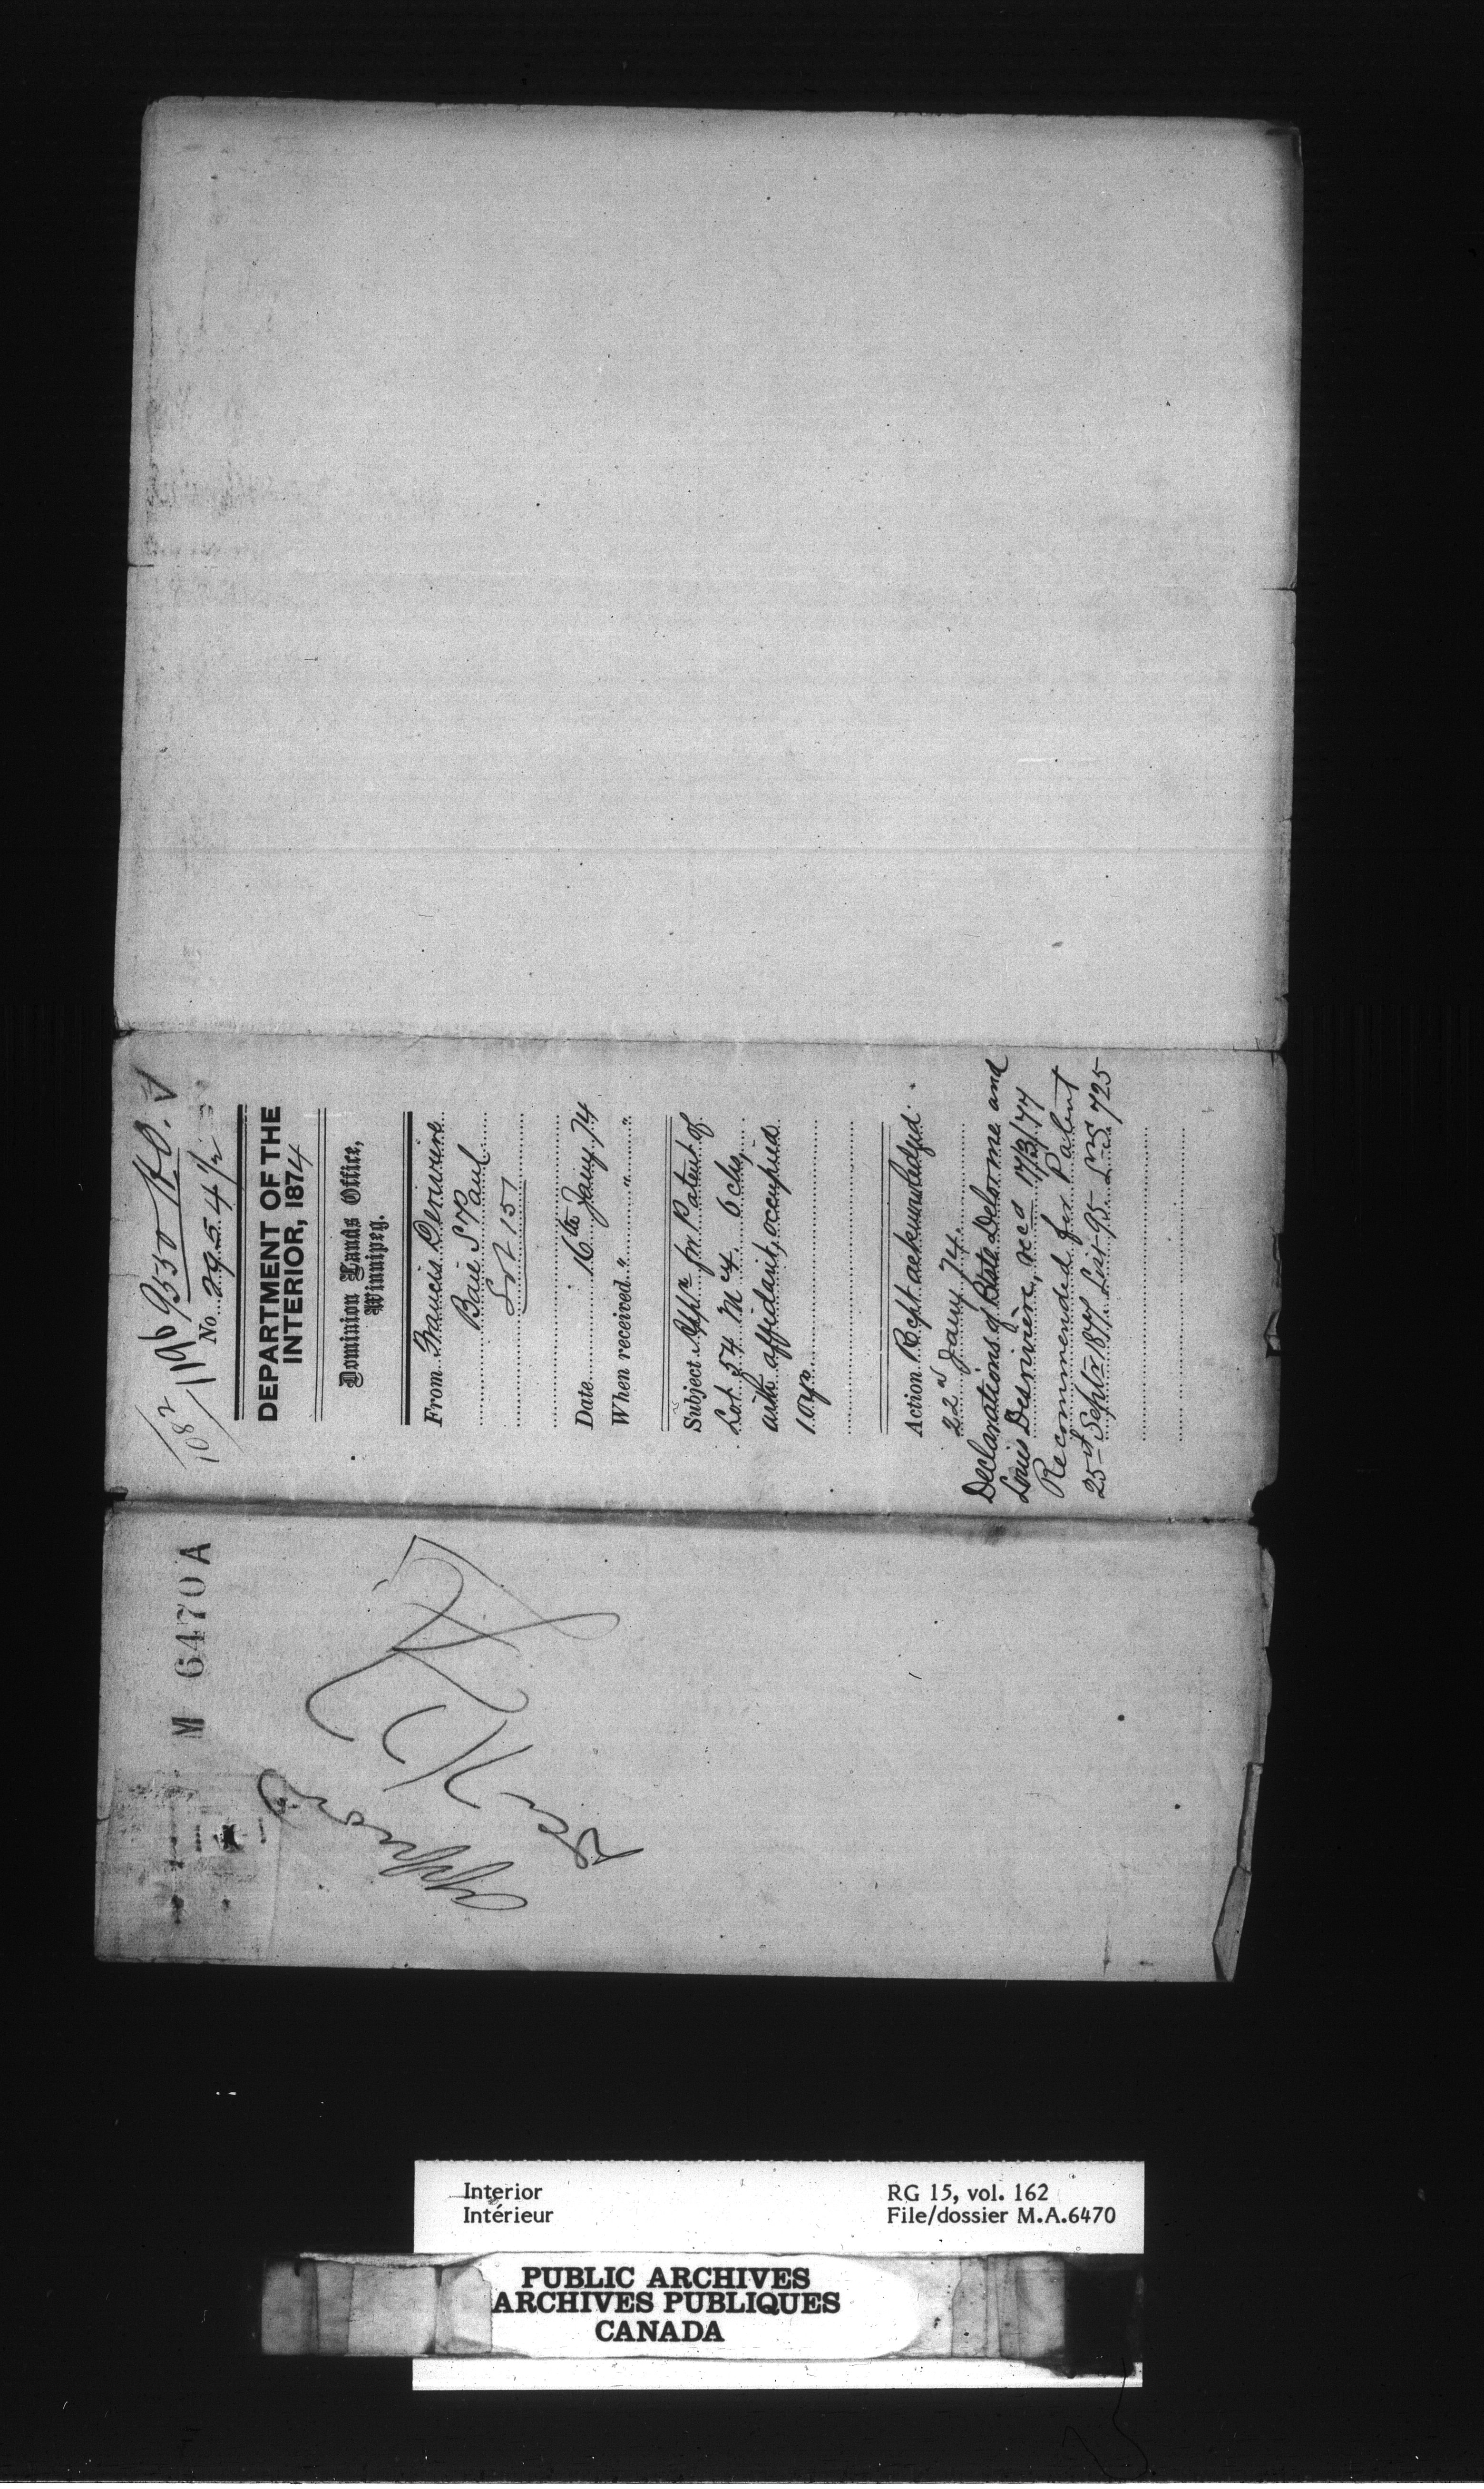 1082/1196 9550 H.O.
No. 2954 1/2
DEPARTMENT OF THE
INTERIOR, 1874
Dominion Lands Office,
Winnipeg.
From Francis Desrivière
Baie St Paul
Lot 151
Date 16th Jany 74
When received " " "
Subject Appln for Patent of
Lot 54 6 chs,
with affidavit, occupied
10 yrs
Action Rcpt acknowledged
22d Jany 74.
Declarations of Bste Delorme and
Louis Desrivière, recd 17/3/77
Recommended for Patent
25th Septr 1877. List 95. No 725
M 6470 A
Interior
Intérieur
RG 15, vol. 162
File/dossier M.A.6470
PUBLIC ARCHIVES
ARCHIVES PUBLIQUES
CANADA